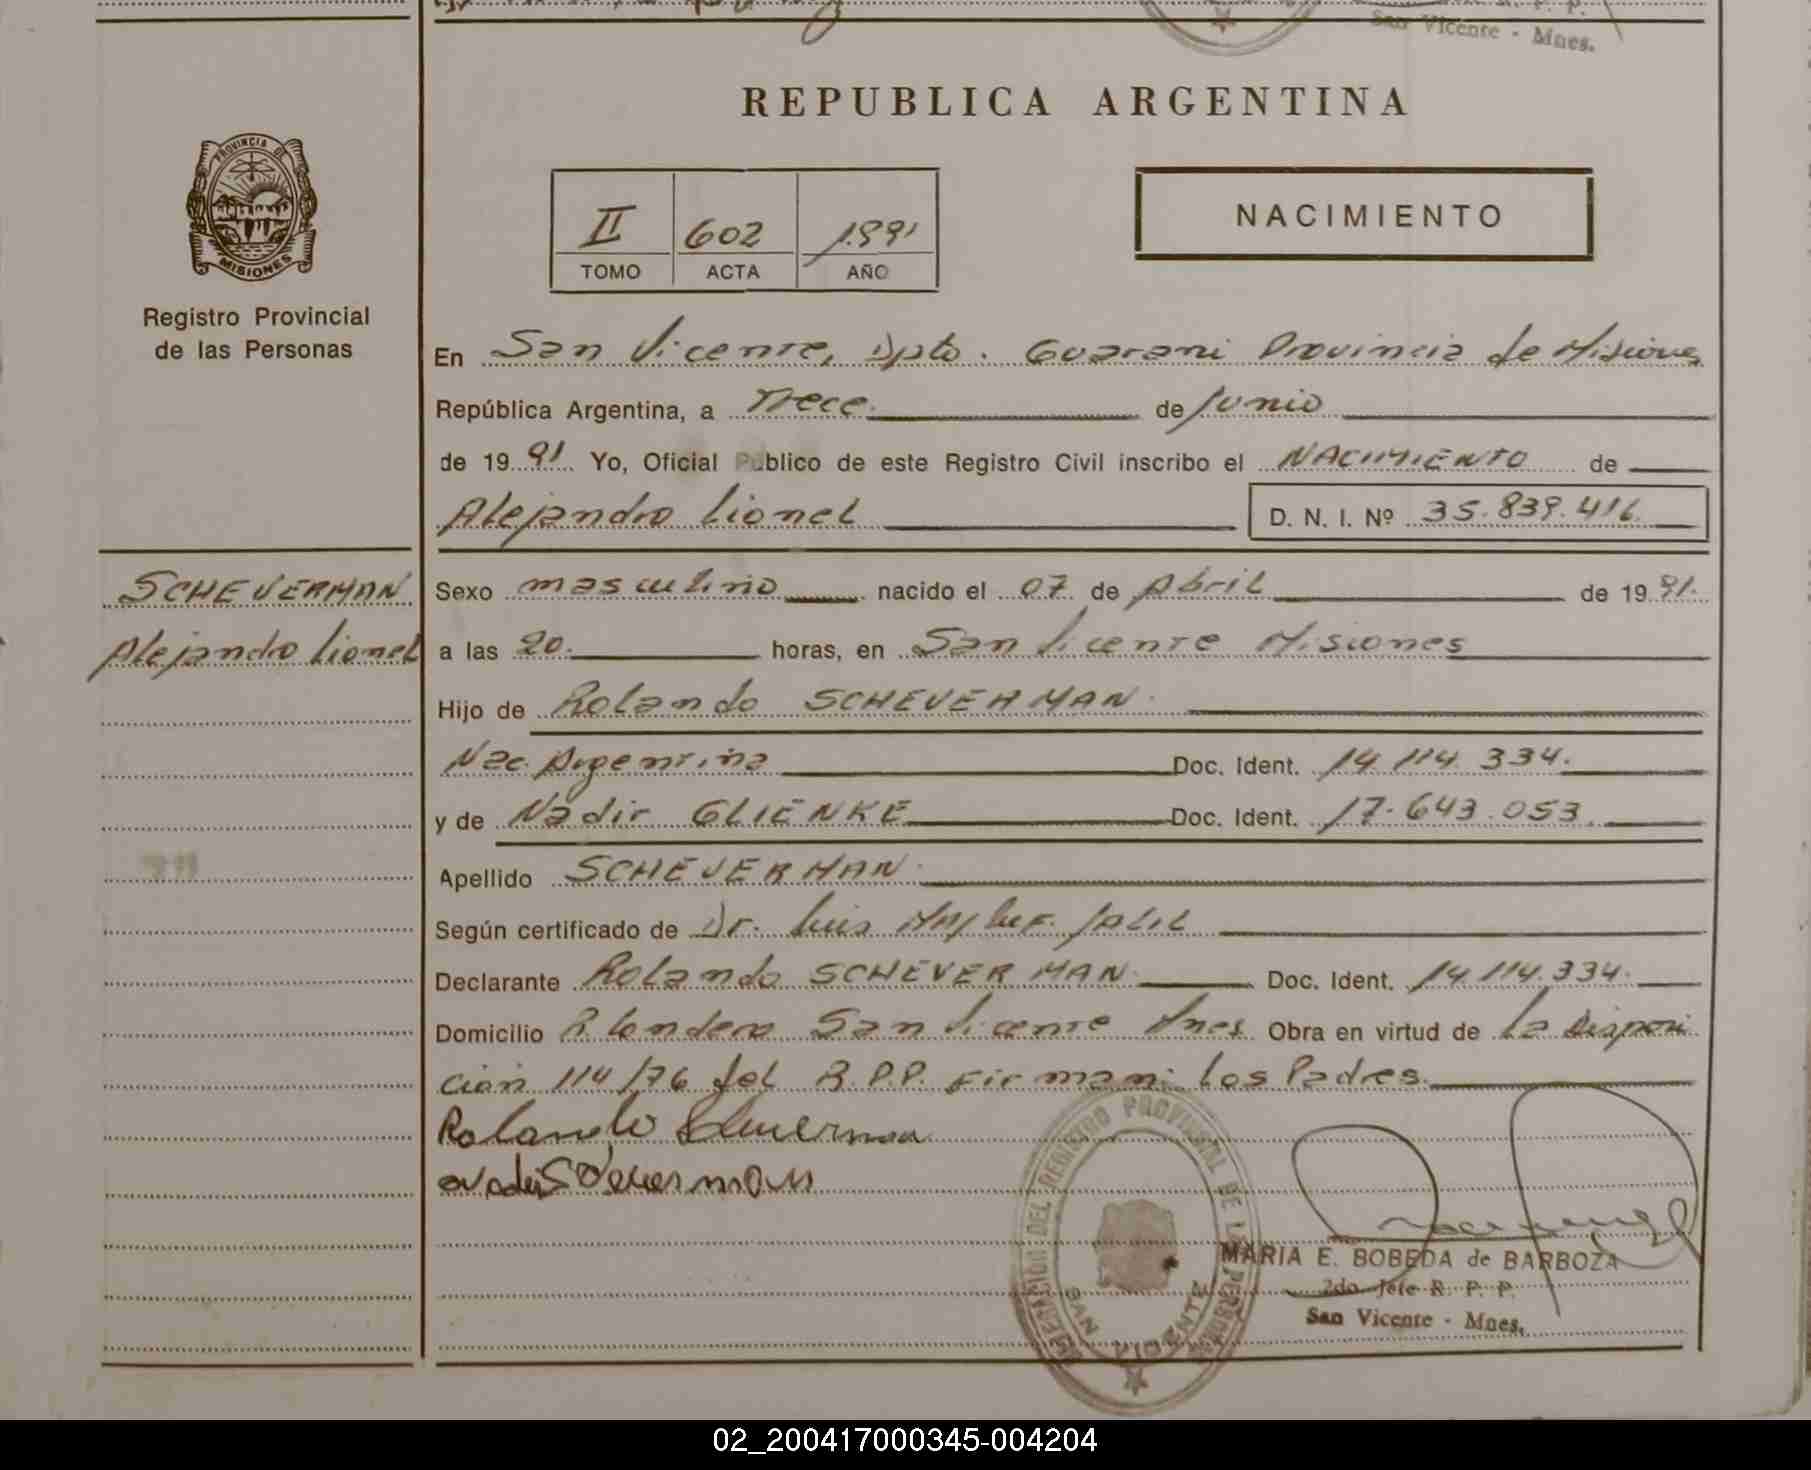 San Vicente - Mnes.
REPUBLICA ARGENTINA
PROVINCIA DE
MISIONES
Registro Provincial
de las Personas
II 602 1991
TOMO ACTA AÑO
NACIMIENTO
En San Vicente, Dpto. Guarani Provincia de Misiones
República Argentina, a Trece de Junio
de 1991 Yo, Oficial Público de este Registro Civil inscribo el NACIMIENTO de
Alejandro Lionel D. N. I. Nº 35.839.416
SCHEVERMAN
Alejandro Lionel
Sexo masculino nacido el 07 de Abril de 1991.
a las 20. horas, en San Vicente Misiones
Hijo de Rolando SCHEVERMAN
Nac. Argentina Doc. Ident. 14.114.334.
y de Nadir GLIENKE Doc. Ident. 17.643.053.
Apellido SCHEVERMAN
Según certificado de Dr. Luis JALIL
Declarante Rolando SCHEVERMAN Doc. Ident. 14.114.334.
Domicilio San Vicente Mnes. Obra en virtud de La Disposi
cion 114/76 del R.P.P. Firman: Los Padres.
Rolando Scheverman
Nadir Scheverman
DEL REGISTRO PROVINCIAL DE LAS PERSONAS
SAN VICENTE
MARIA E. BOBEDA de BARBOZA
2do Jefe R. P. P.
San Vicente - Mnes.
02_200417000345-004204